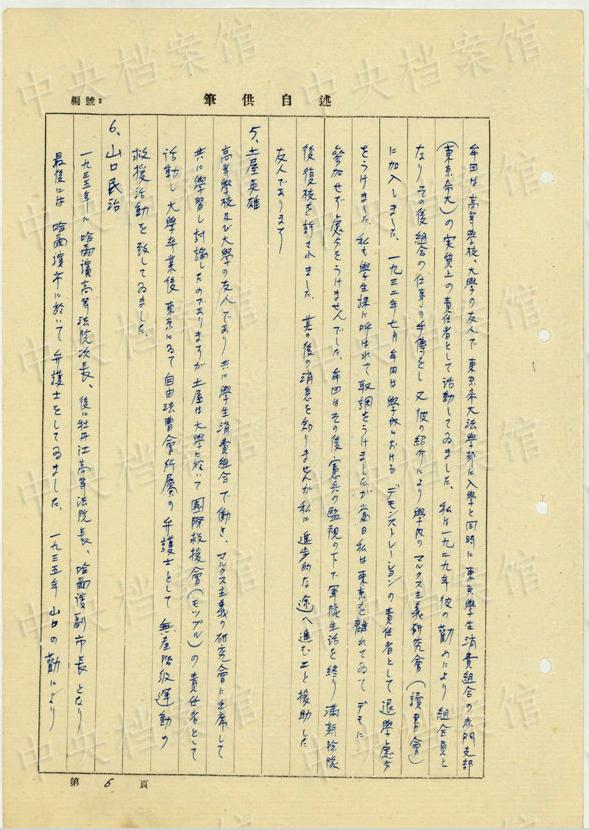 編號：
筆供自述
牟田は高等學校、大學の友人で東京帝大法學部に入學と同時に東京學生消費組合の赤門支部
（東京帝大）の実質上の責任者として活動してゐました。私は一九二九年彼の勧めにより組合員と
なりその後組合の仕事の手傳をし又彼の紹介により學内のマルクス主義研究會（讀書會）
に加入しました。一九三二年七月牟田は學内に於けるデモンストレーションの責任者として退學處分
をうけました。私も學生課に呼ばれて取調をうけましたが當日私は東京を離れてゐてデモに
參加せず處分をうけませんでした。牟田はその後憲兵の監視の下で軍隊生活を終り滿期除隊
後復校を許されました。其の後の消息を知りませんが私に進步的な途へ進むこと援助した
友人であります
5、土屋英雄
高等學校及び大學の友人であり共に學生消費組合で働き、マルクス主義の研究會に出席して
共に學習し討論したのでありますが土屋は大學に於いて國際救援會（モップル）の責任者として
活動し大學卒業後東京にゐて自由法曹會所屬の弁護士として無產階級運動の
救援活動を致してゐました。
6、山口民治
一九三五年に哈爾濱高等法院次長、後に牡丹江高等法院長、哈爾濱副市長となり
最後には哈爾濱市に於いて弁護士をしてゐました。一九三五年山口の勧により
第 6 頁
中央档案馆